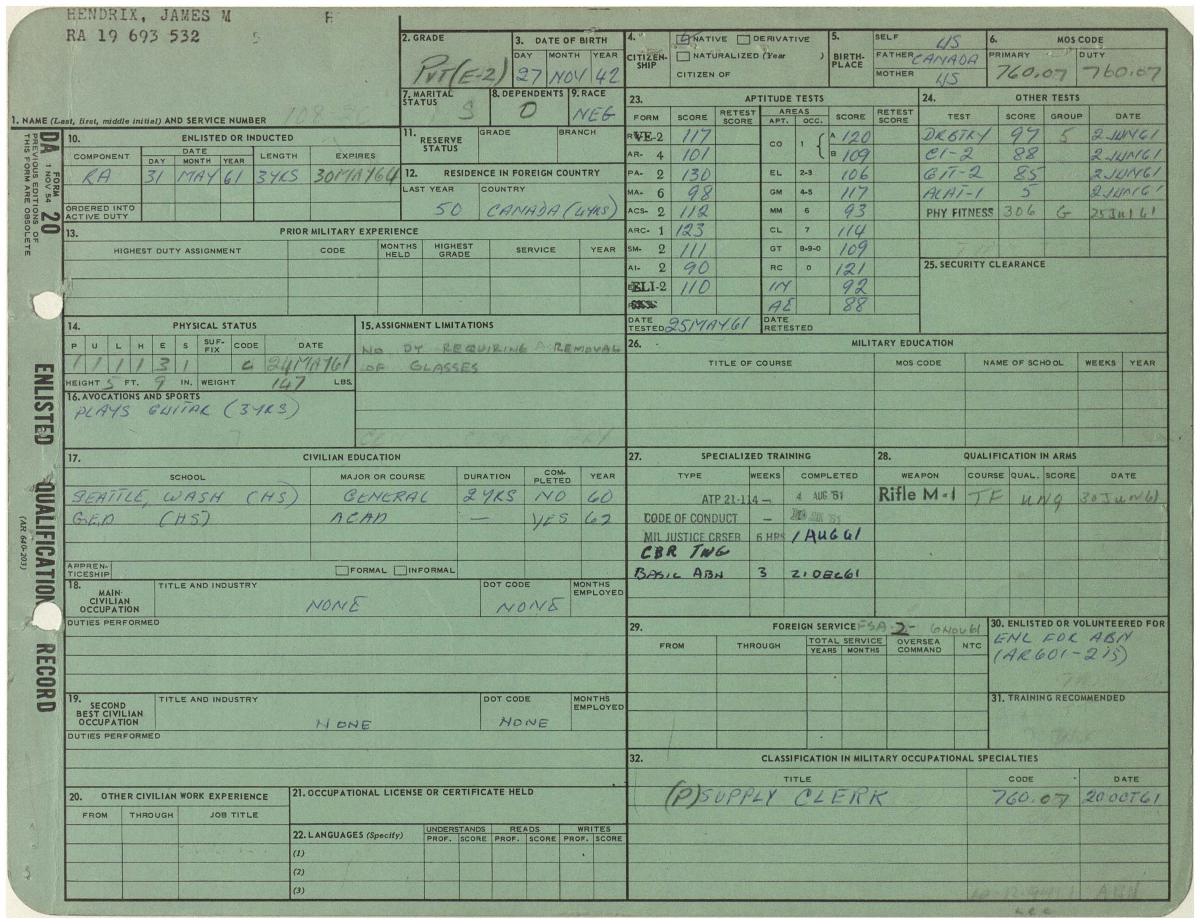 HENDRIX, JAMES M
RA 19 693 532
1. NAME (Last, first, middle initial) AND SERVICE NUMBER
2. GRADE
PVT (E-2)
3. DATE OF BIRTH
DAY MONTH YEAR
27 NOV 42
4. CITIZEN-SHIP
NATIVE DERIVATIVE
NATURALIZED (Year )
CITIZEN OF
5. BIRTH-PLACE
SELF US
FATHER CANADA
MOTHER US
6. MOS CODE
PRIMARY DUTY
760.07 760.07
7. MARITAL STATUS
S
8. DEPENDENTS
0
9. RACE
NEG
DA FORM 20
1 NOV 54
PREVIOUS EDITIONS OF THIS FORM ARE OBSOLETE
ENLISTED QUALIFICATION RECORD
(AR 640-203)
10. ENLISTED OR INDUCTED
COMPONENT DATE LENGTH EXPIRES
DAY MONTH YEAR
RA 31 MAY 61 3YRS 30MAY64
ORDERED INTO ACTIVE DUTY
11. RESERVE STATUS
GRADE BRANCH
12. RESIDENCE IN FOREIGN COUNTRY
LAST YEAR COUNTRY
50 CANADA (4YRS)
13. PRIOR MILITARY EXPERIENCE
HIGHEST DUTY ASSIGNMENT CODE MONTHS HELD HIGHEST GRADE SERVICE YEAR
14. PHYSICAL STATUS
P U L H E S SUF-FIX CODE DATE
1 1 1 1 3 1 C 24MAY61
HEIGHT 5 FT. 9 IN. WEIGHT 147 LBS.
15. ASSIGNMENT LIMITATIONS
NO DY REQUIRING REMOVAL
OF GLASSES
16. AVOCATIONS AND SPORTS
PLAYS GUITAR (3YRS)
17. CIVILIAN EDUCATION
SCHOOL MAJOR OR COURSE DURATION COM-PLETED YEAR
SEATTLE, WASH (HS) GENERAL 2YRS NO 60
GED (HS) ACAD — YES 62
APPREN-TICESHIP FORMAL INFORMAL
18. MAIN-CIVILIAN OCCUPATION
TITLE AND INDUSTRY DOT CODE MONTHS EMPLOYED
NONE NONE
DUTIES PERFORMED
19. SECOND BEST CIVILIAN OCCUPATION
TITLE AND INDUSTRY DOT CODE MONTHS EMPLOYED
NONE NONE
DUTIES PERFORMED
20. OTHER CIVILIAN WORK EXPERIENCE
FROM THROUGH JOB TITLE
21. OCCUPATIONAL LICENSE OR CERTIFICATE HELD
22. LANGUAGES (Specify) UNDERSTANDS READS WRITES
PROF. SCORE PROF. SCORE PROF. SCORE
(1)
(2)
(3)
23. APTITUDE TESTS
FORM SCORE RETEST SCORE AREAS SCORE RETEST SCORE
APT. OCC.
VE-2 117 CO 1 A 120
AR- 4 101 B 109
PA- 2 130 EL 2-3 106
MA- 6 98 GM 4-5 117
ACS- 2 112 MM 6 93
ARC- 1 123 CL 7 114
SM- 2 111 GT 8-9-0 109
AI- 2 90 RC 0 121
ELI-2 110 IN 92
AE 88
DATE TESTED 25MAY61 DATE RETESTED
24. OTHER TESTS
TEST SCORE GROUP DATE
97 5 2JUN61
88 2JUN61
85 2JUN61
5 2JUN61
PHY FITNESS 306 G
25. SECURITY CLEARANCE
26. MILITARY EDUCATION
TITLE OF COURSE MOS CODE NAME OF SCHOOL WEEKS YEAR
27. SPECIALIZED TRAINING
TYPE WEEKS COMPLETED
ATP 21-114 — 4 AUG '61
CODE OF CONDUCT —
MIL JUSTICE CRSEB 6 HRS 1 AUG 61
CBR TNG
BASIC ABN 3 21DEC61
28. QUALIFICATION IN ARMS
WEAPON COURSE QUAL. SCORE DATE
Rifle M-1 TF UNQ 30JUN61
29. FOREIGN SERVICE FSA-2- 6NOV61
FROM THROUGH TOTAL SERVICE OVERSEA COMMAND NTC
YEARS MONTHS
30. ENLISTED OR VOLUNTEERED FOR
ENL FOR ABN
(AR601-215)
31. TRAINING RECOMMENDED
32. CLASSIFICATION IN MILITARY OCCUPATIONAL SPECIALTIES
TITLE CODE DATE
(P) SUPPLY CLERK 760.07 20OCT61